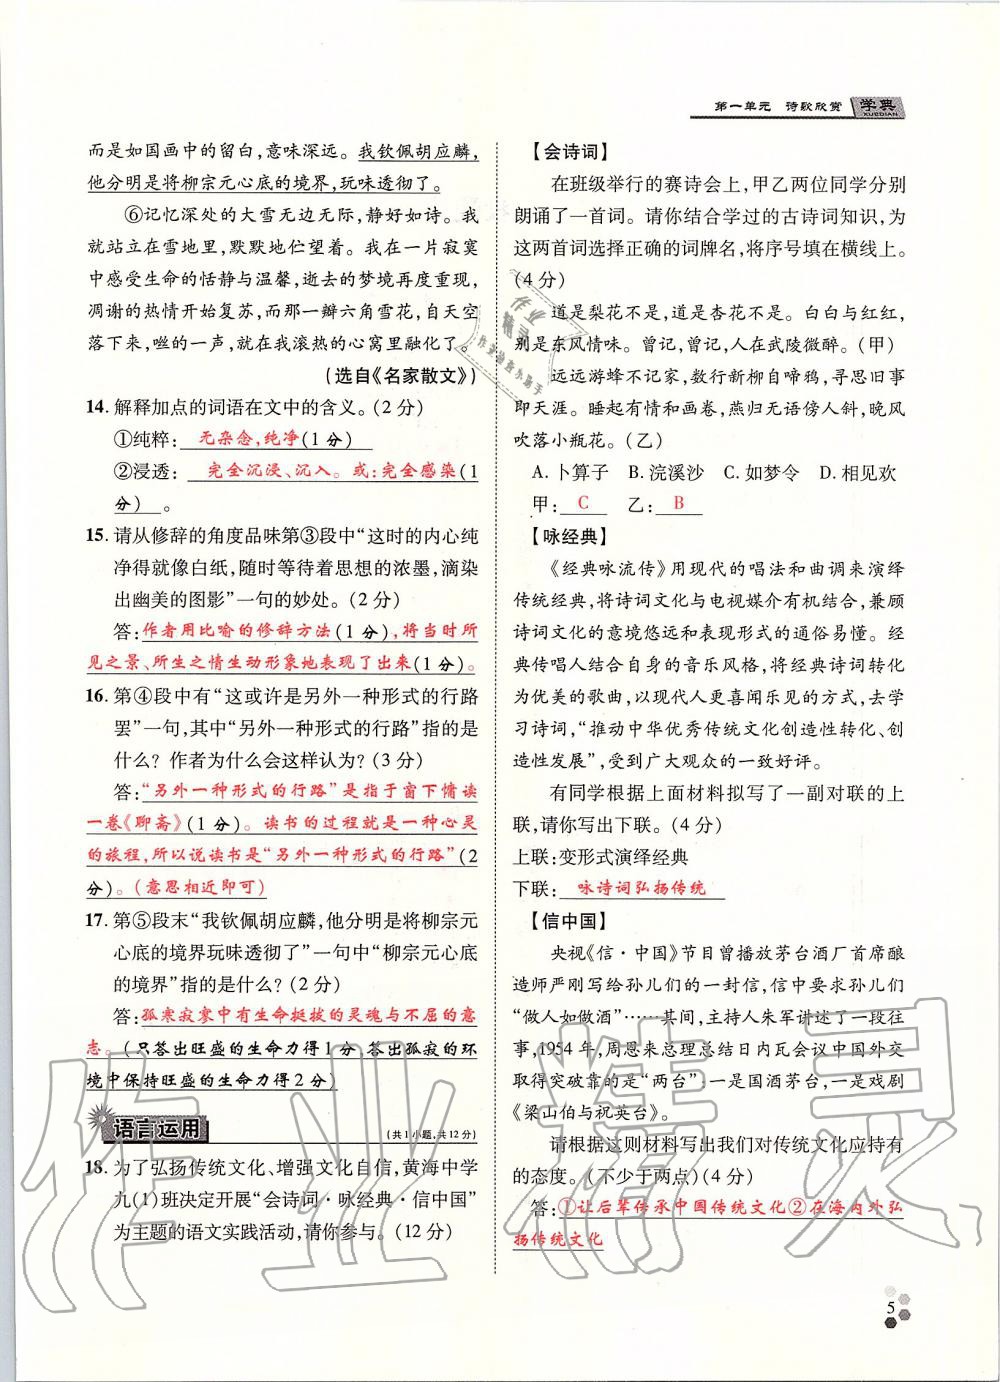 第一单元 诗歌欣赏 学典
XUEDIAN
而是如国画中的留白,意味深远。我钦佩胡应麟,
他分明是将柳宗元心底的境界,玩味透彻了。
⑥记忆深处的大雪无边无际,静好如诗。我
就站立在雪地里,默默地伫望着。我在一片寂寞
中感受生命的恬静与温馨,逝去的梦境再度重现,
凋谢的热情开始复苏,而那一瓣六角雪花,自天空
落下来,咝的一声,就在我滚热的心窝里融化了。
(选自《名家散文》)
14. 解释加点的词语在文中的含义。(2分)
①纯粹: 无杂念,纯净(1分)
②浸透: 完全沉浸、沉入。或:完全感染(1
分)。
15. 请从修辞的角度品味第③段中“这时的内心纯
净得就像白纸,随时等待着思想的浓墨,滴染
出幽美的图影”一句的妙处。(2分)
答:作者用比喻的修辞方法(1分),将当时所
见之景、所生之情生动形象地表现了出来(1分)。
16. 第④段中有“这或许是另外一种形式的行路
罢”一句,其中“另外一种形式的行路”指的是
什么?作者为什么会这样认为?(3分)
答:“另外一种形式的行路”是指于窗下慵读
一卷《聊斋》(1分)。读书的过程就是一种心灵
的旅程,所以说读书是“另外一种形式的行路”(2
分)。(意思相近即可)
17. 第⑤段末“我钦佩胡应麟,他分明是将柳宗元
心底的境界玩味透彻了”一句中“柳宗元心底
的境界”指的是什么?(2分)
答:孤寒寂寥中有生命挺拔的灵魂与不屈的意
志。(只答出旺盛的生命力得1分,答出孤寂的环
境中保持旺盛的生命力得2分)
语言运用 (共1小题,共12分)
18. 为了弘扬传统文化、增强文化自信,黄海中学
九(1)班决定开展“会诗词·咏经典·信中国”
为主题的语文实践活动,请你参与。(12分)
【会诗词】
在班级举行的赛诗会上,甲乙两位同学分别
朗诵了一首词。请你结合学过的古诗词知识,为
这两首词选择正确的词牌名,将序号填在横线上。
(4分)
道是梨花不是,道是杏花不是。白白与红红,
别是东风情味。曾记,曾记,人在武陵微醉。(甲)
远远游蜂不记家,数行新柳自啼鸦,寻思旧事
即天涯。睡起有情和画卷,燕归无语傍人斜,晚风
吹落小瓶花。(乙)
A. 卜算子 B. 浣溪沙 C. 如梦令 D. 相见欢
甲: C 乙: B
【咏经典】
《经典咏流传》用现代的唱法和曲调来演绎
传统经典,将诗词文化与电视媒介有机结合,兼顾
诗词文化的意境悠远和表现形式的通俗易懂。经
典传唱人结合自身的音乐风格,将经典诗词转化
为优美的歌曲,以现代人更喜闻乐见的方式,去学
习诗词,“推动中华优秀传统文化创造性转化、创
造性发展”,受到广大观众的一致好评。
有同学根据上面材料拟写了一副对联的上
联,请你写出下联。(4分)
上联:变形式演绎经典
下联: 咏诗词弘扬传统
【信中国】
央视《信·中国》节目曾播放茅台酒厂首席酿
造师严刚写给孙儿们的一封信,信中要求孙儿们
“做人如做酒”……其间,主持人朱军讲述了一段往
事,1954年,周恩来总理总结日内瓦会议中国外交
取得突破靠的是“两台”:一是国酒茅台,一是戏剧
《梁山伯与祝英台》。
请根据这则材料写出我们对传统文化应持有
的态度。(不少于两点)(4分)
答:①让后辈传承中国传统文化②在海内外弘
扬传统文化
5
作业精灵